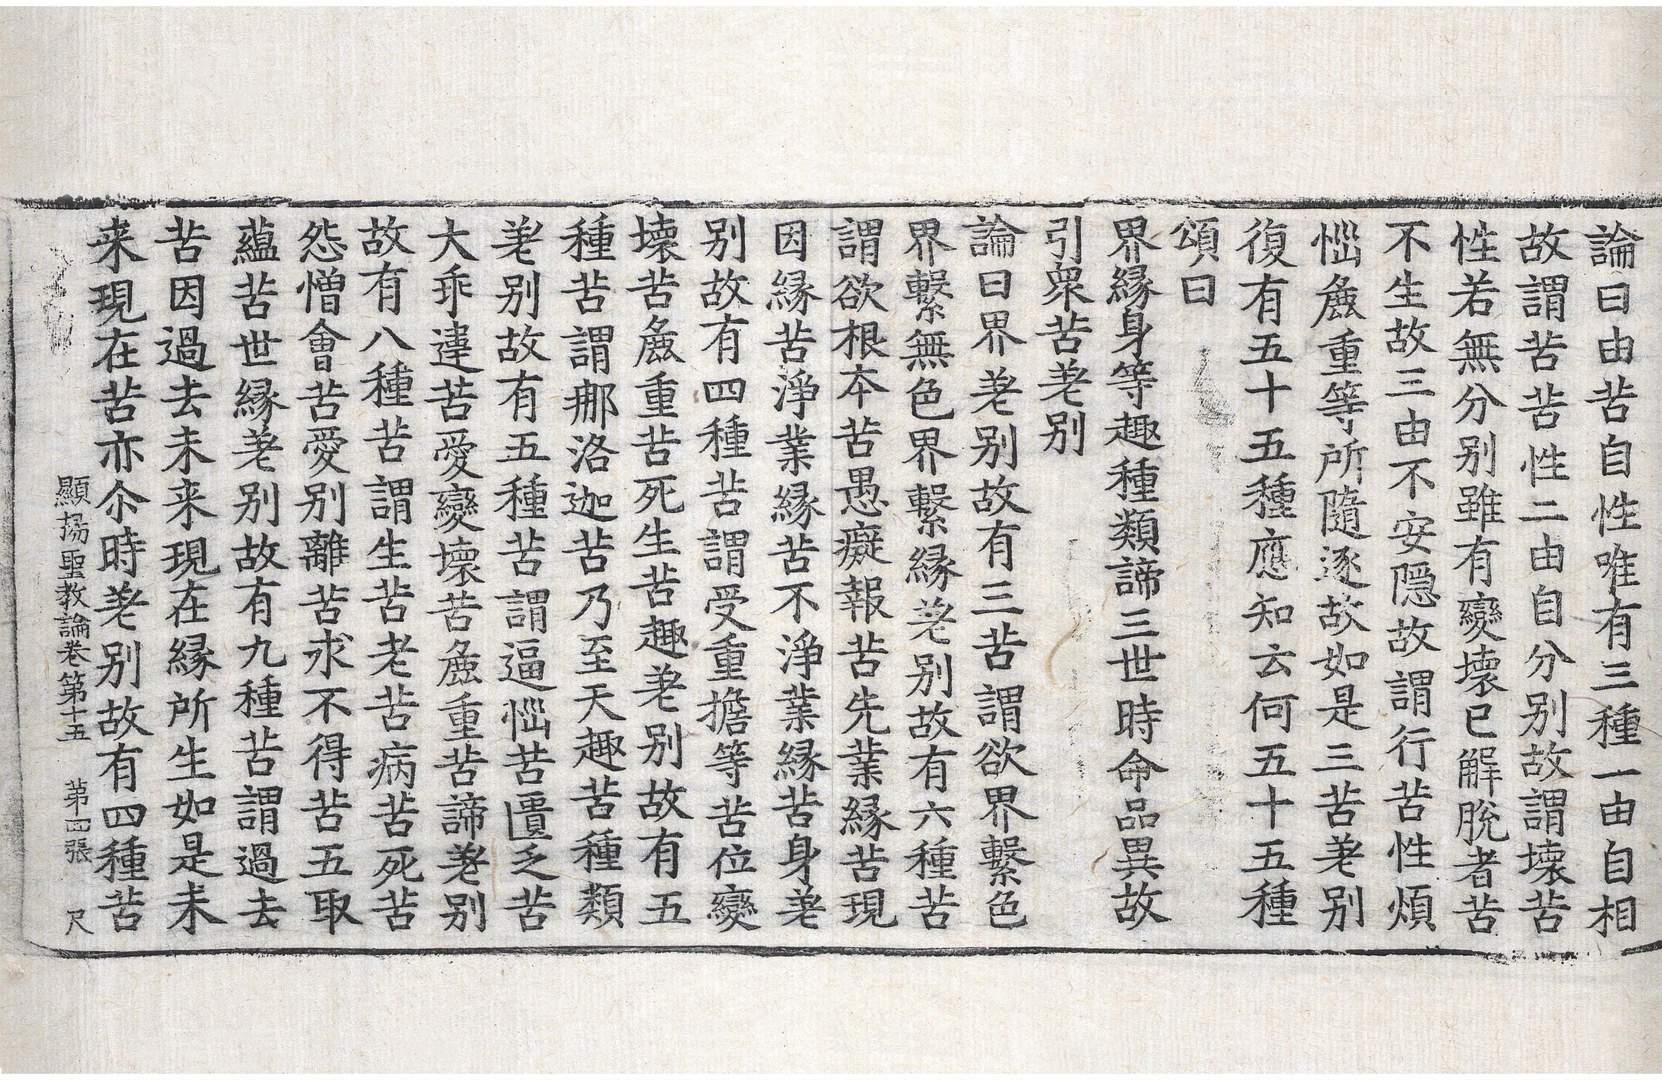 論曰由苦自性唯有三種一由自相
故謂苦苦性二由自分別故謂壞苦
性若無分別雖有變壞已解脫者苦
不生故三由不安隱故謂行苦性煩
惱麁重等所隨逐故如是三苦差別
復有五十五種應知云何五十五種
頌曰
界緣身等趣種類諦三世時命品異故
引衆苦差別
論曰界差別故有三苦謂欲界繫色
界繫無色界繫緣差別故有六種苦
謂欲根本苦愚癡報苦先業緣苦現
因緣苦淨業緣苦不淨業緣苦身差
別故有四種苦謂受重擔等苦位變
壞苦麁重苦死生苦趣差別故有五
種苦謂那洛迦苦乃至天趣苦種類
差別故有五種苦謂逼惱苦匱乏苦
大乖違苦愛變壞苦麁重苦諦差別
故有八種苦謂生苦老苦病苦死苦
怨憎會苦愛別離苦求不得苦五取
蘊苦世緣差別故有九種苦謂過去
苦因過去未来現在緣所生如是未
来現在苦亦尒時差別故有四種苦
顯揚聖教論卷第十五 第四張 尺